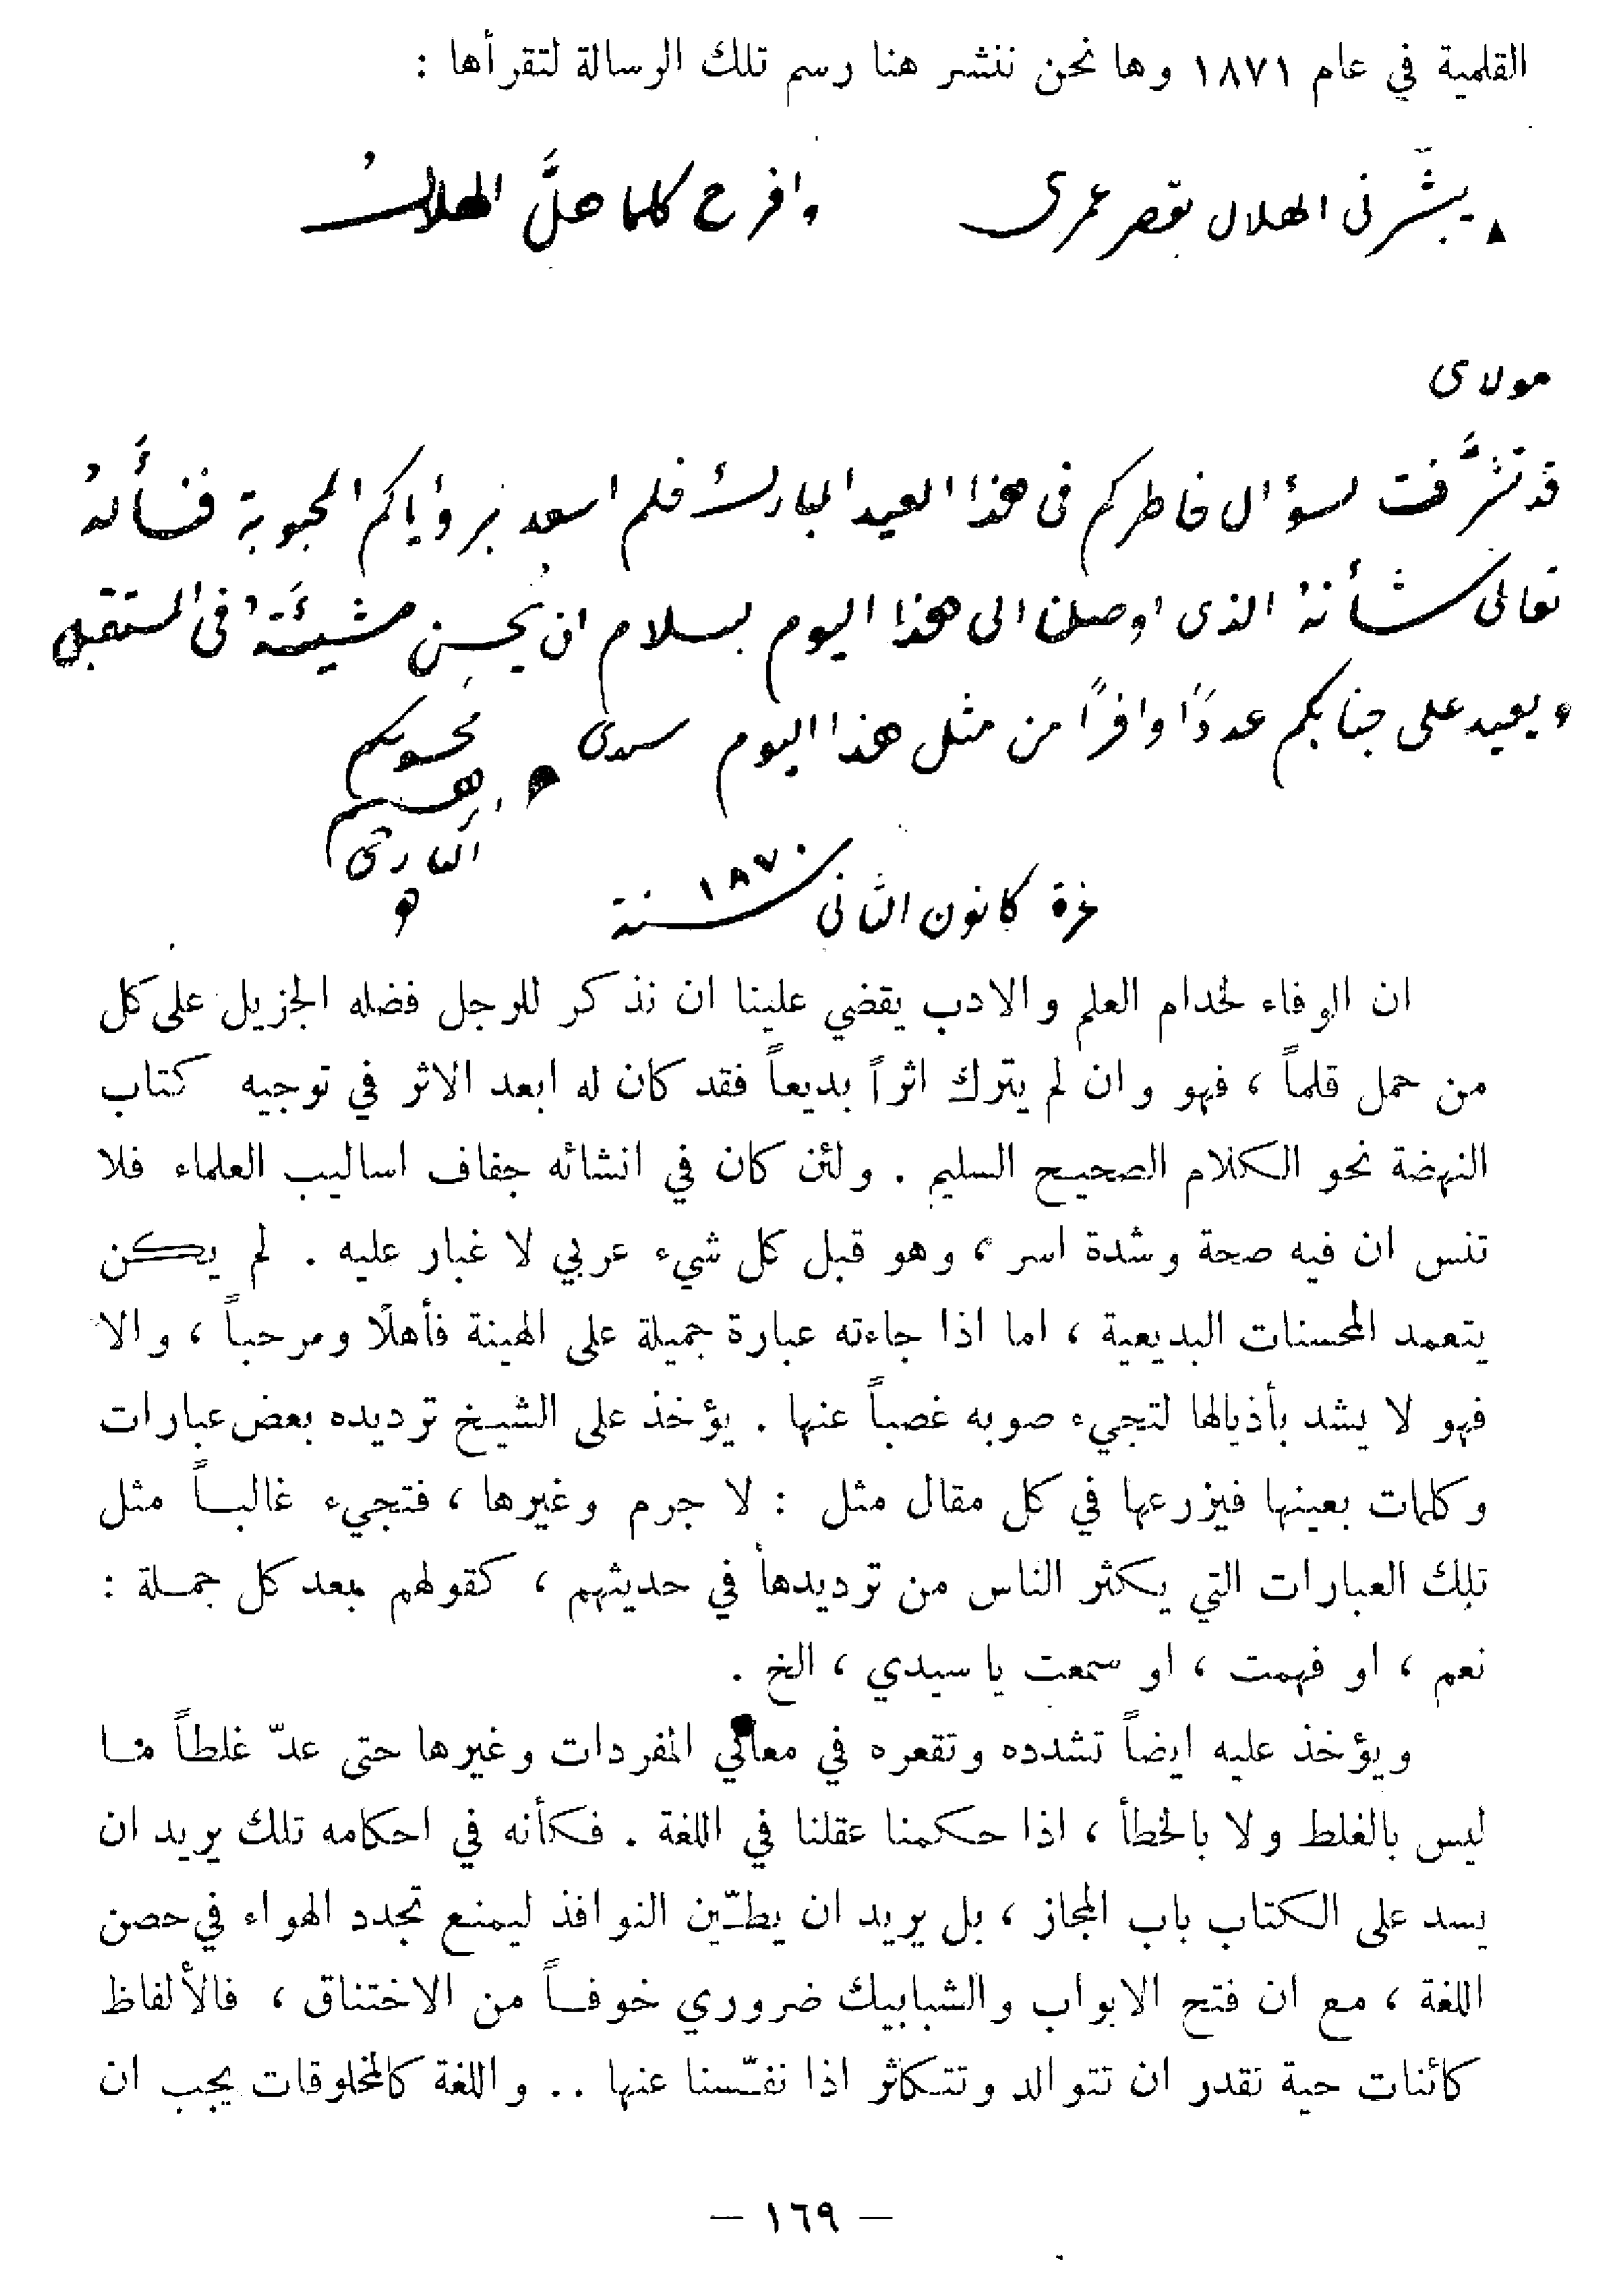 القلمية في عام ١٨٧١ وها نحن ننشر هنا رسم تلك الرسالة لتقرأها :
يبشّرنى الهلال بقصر عمرى وافرح كلما هلَّ الهلالُ
مولاى
قد تشرَّفت لسؤال خاطركم فى هذا العيد المبارك فلم اسعد برؤياكم المحبوبة فسأَلهُ
تعالى شأنهُ الذى اوصلنا الى هذا اليوم بسلام ان يُحسن مشيئَتهُ فى المستقبل
ويعيد على جنابكم عددًا وافرًا من مثل هذا اليوم سيدى
محسوبكم
ابرهيم
اليازجى
غرة كانون الثانى سنة ١٨٧٠
ان الوفاء لخدام العلم والادب يقضي علينا ان نذكر للرجل فضله الجزيل على كل
من حمل قلماً ، فهو وان لم يترك اثراً بديعاً فقد كان له ابعد الاثر في توجيه كتاب
النهضة نحو الكلام الصحيح السليم . ولئن كان في انشائه جفاف اساليب العلماء فلا
تنس ان فيه صحة وشدة اسر ، وهو قبل كل شيء عربي لا غبار عليه . لم يكن
يتعمد المحسنات البديعية ، اما اذا جاءته عبارة جميلة على الهينة فأهلًا ومرحباً ، والا
فهو لا يشد بأذيالها لتجيء صوبه غصباً عنها . يؤخذ على الشيخ ترديده بعض عبارات
وكلمات بعينها فيزرعها في كل مقال مثل : لا جرم وغيرها ، فتجيء غالباً مثل
تلك العبارات التي يكثر الناس من ترديدها في حديثهم ، كقولهم بعد كل جملة :
نعم ، او فهمت ، او سمعت يا سيدي ، الخ .
ويؤخذ عليه ايضاً تشدده وتقعره في معاني المفردات وغيرها حتى عدّ غلطاً ما
ليس بالغلط ولا بالخطأ ، اذا حكمنا عقلنا في اللغة . فكأنه في احكامه تلك يريد ان
يسد على الكتاب باب المجاز ، بل يريد ان يطيّن النوافذ ليمنع تجدد الهواء في حصن
اللغة ، مع ان فتح الابواب والشبابيك ضروري خوفاً من الاختناق ، فالألفاظ
كائنات حية تقدر ان تتوالد وتتكاثر اذا نفّسنا عنها .. واللغة كالمخلوقات يجب ان
— ١٦٩ —